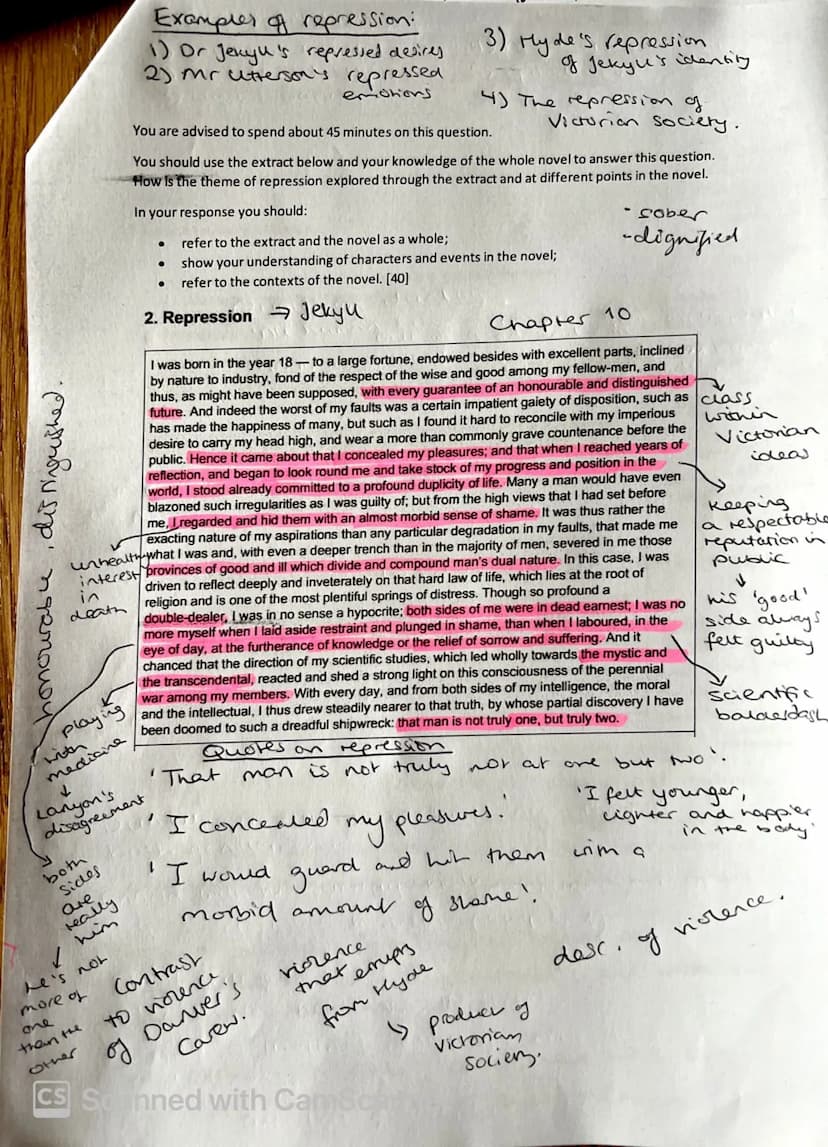 Examples of repression:
1) Dr Jekyll's repressed desires
2) Mr Utterson's repressed
emotions
3) Hyde's repression
of Jekyll's identity
4) The repression of
Victorian society.
You are advised to spend about 45 minutes on this question.
You should use the extract below and your knowledge of the whole novel to answer this question.
How is the theme of repression explored through the extract and at different points in the novel.
In your response you should:
- sober
- dignified
• refer to the extract and the novel as a whole;
• show your understanding of characters and events in the novel;
• refer to the contexts of the novel. [40]
2. Repression → Jekyll
Chapter 10
I was born in the year 18 — to a large fortune, endowed besides with excellent parts, inclined
by nature to industry, fond of the respect of the wise and good among my fellow-men, and
thus, as might have been supposed, with every guarantee of an honourable and distinguished
future. And indeed the worst of my faults was a certain impatient gaiety of disposition, such as
has made the happiness of many, but such as I found it hard to reconcile with my imperious
desire to carry my head high, and wear a more than commonly grave countenance before the
public. Hence it came about that I concealed my pleasures; and that when I reached years of
reflection, and began to look round me and take stock of my progress and position in the
world, I stood already committed to a profound duplicity of life. Many a man would have even
blazoned such irregularities as I was guilty of; but from the high views that I had set before
me, I regarded and hid them with an almost morbid sense of shame. It was thus rather the
exacting nature of my aspirations than any particular degradation in my faults, that made me
what I was and, with even a deeper trench than in the majority of men, severed in me those
provinces of good and ill which divide and compound man's dual nature. In this case, I was
driven to reflect deeply and inveterately on that hard law of life, which lies at the root of
religion and is one of the most plentiful springs of distress. Though so profound a
double-dealer, I was in no sense a hypocrite; both sides of me were in dead earnest; I was no
more myself when I laid aside restraint and plunged in shame, than when I laboured, in the
eye of day, at the furtherance of knowledge or the relief of sorrow and suffering. And it
chanced that the direction of my scientific studies, which led wholly towards the mystic and
the transcendental, reacted and shed a strong light on this consciousness of the perennial
war among my members. With every day, and from both sides of my intelligence, the moral
and the intellectual, I thus drew steadily nearer to that truth, by whose partial discovery I have
been doomed to such a dreadful shipwreck: that man is not truly one, but truly two.
class
within
Victorian
ideas
keeping
a respectable
reputation in
public
↓
his 'good'
side always
felt guilty
scientific
balderdash
honourable, distinguished.
unhealthy
interest
in
death
playing
with
medicine
↓
Lanyon's
disagreement
both
sides
are
really
him
↓
he's not
more of
one
than the
other
Quotes on repression
'That man is not truly not at one but two'.
'I concealed my pleasures.'
'I felt younger,
lighter and happier
in the body'
'I would guard and hid them with a
morbid amount of shame'.
contrast
to violence
of Danver's
Carew.
violence
that erupts
from Hyde
↳ product of
Victorian
society.
desc. of violence.
CS Scanned with CamScanner